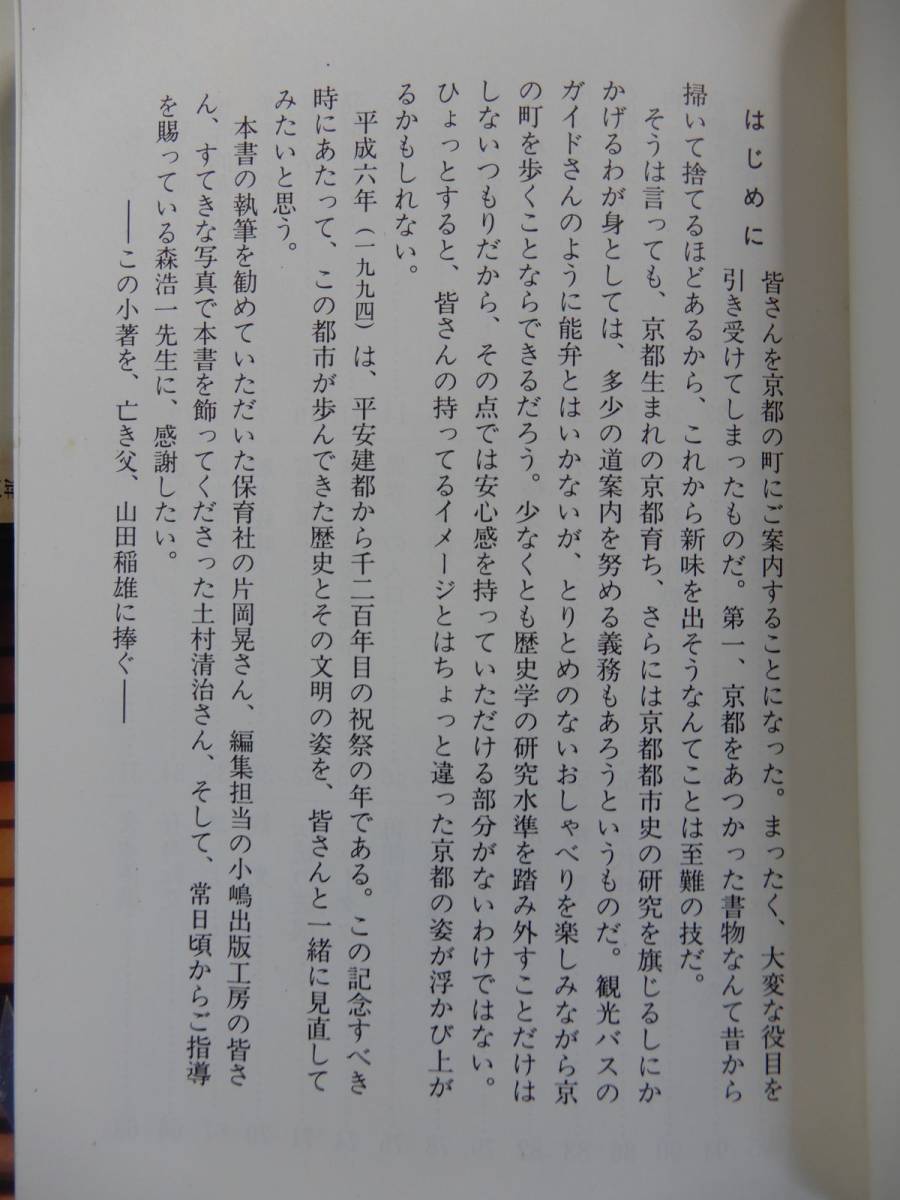 はじめに
皆さんを京都の町にご案内することになった。まったく、大変な役目を
引き受けてしまったものだ。第一、京都をあつかった書物なんて昔から
掃いて捨てるほどあるから、これから新味を出そうなんてことは至難の技だ。
そうは言っても、京都生まれの京都育ち、さらには京都都市史の研究を旗じるしにか
かげるわが身としては、多少の道案内を努める義務もあろうというものだ。観光バスの
ガイドさんのように能弁とはいかないが、とりとめのないおしゃべりを楽しみながら京
の町を歩くことならできるだろう。少なくとも歴史学の研究水準を踏み外すことだけは
しないつもりだから、その点では安心感を持っていただける部分がないわけではない。
ひょっとすると、皆さんの持ってるイメージとはちょっと違った京都の姿が浮かび上が
るかもしれない。
平成六年（一九九四）は、平安建都から千二百年目の祝祭の年である。この記念すべき
時にあたって、この都市が歩んできた歴史とその文明の姿を、皆さんと一緒に見直して
みたいと思う。
本書の執筆を勧めていただいた保育社の片岡晃さん、編集担当の小嶋出版工房の皆さ
ん、すてきな写真で本書を飾ってくださった土村清治さん、そして、常日頃からご指導
を賜っている森浩一先生に、感謝したい。
――この小著を、亡き父、山田稲雄に捧ぐ――